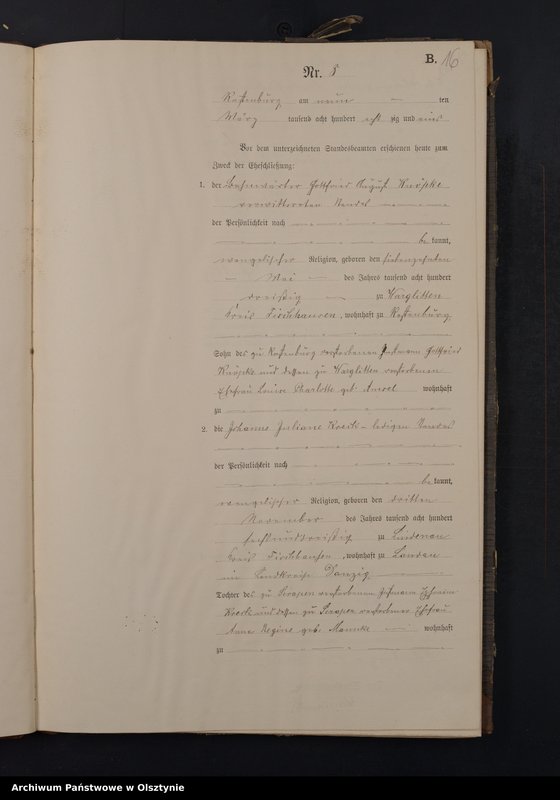 B. 16
Nr. 8
Rastenburg am neun ten
März tausend acht hundert acht zig und eins
Vor dem unterzeichneten Standesbeamten erschienen heute zum
Zweck der Eheschließung:
1. der Gottfried August
verwittweten Standes
der Persönlichkeit nach
be kannt,
evangelischer Religion, geboren den siebenzehnten
Mai des Jahres tausend acht hundert
dreißig zu Warglitten
Kreis Fischhausen, wohnhaft zu Rastenburg
Sohn des zu Rastenburg verstorbenen Gottfried
und dessen zu Warglitten verstorbenen
Ehefrau Louise Charlotte geb. Amsel wohnhaft
zu
2. die Johanne Juliane ledigen Standes
der Persönlichkeit nach
be kannt,
evangelischer Religion, geboren den dritten
November des Jahres tausend acht hundert
sechsunddreißig zu Lindenau
Kreis Fischhausen, wohnhaft zu Landau
im Landkreise Danzig
Tochter des zu Serapen verstorbenen
und dessen zu Serapen verstorbener Ehefrau
Anna Regine geb. wohnhaft
zu
Archiwum Państwowe w Olsztynie